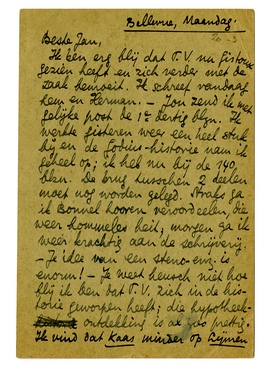 Bellevue, Maandag.
Beste Jan,
Ik ben erg blij dat T.V. nu Fistoux
gezien heeft en zich verder met de
zaak bemoeit. Ik schreef vandaag
hem en Herman. — Jou zend ik met
gelijke post de 1e dertig blzn. Ik
werkte gisteren weer een heel stuk
bij en de Gobius-historie nam ik
geheel op; ik heb nu bij de 140
blzn. De brug tusschen 2 deelen
moet nog worden gelegd. Straks ga
ik Bonnet hooren veroordeelen, die
weer Rommeles heit, morgen ga ik
weer krachtig aan de schrijverij.
— Je idee van een steno-enz. is
enorm! — Ik weet heusch niet hoe
blij ik ben dat T.V. zich in de his-
torie geworpen heeft; die hypotheek-
ontdekking is al zoo prettig.
Ik vind dat Kaas minder op Leijnen